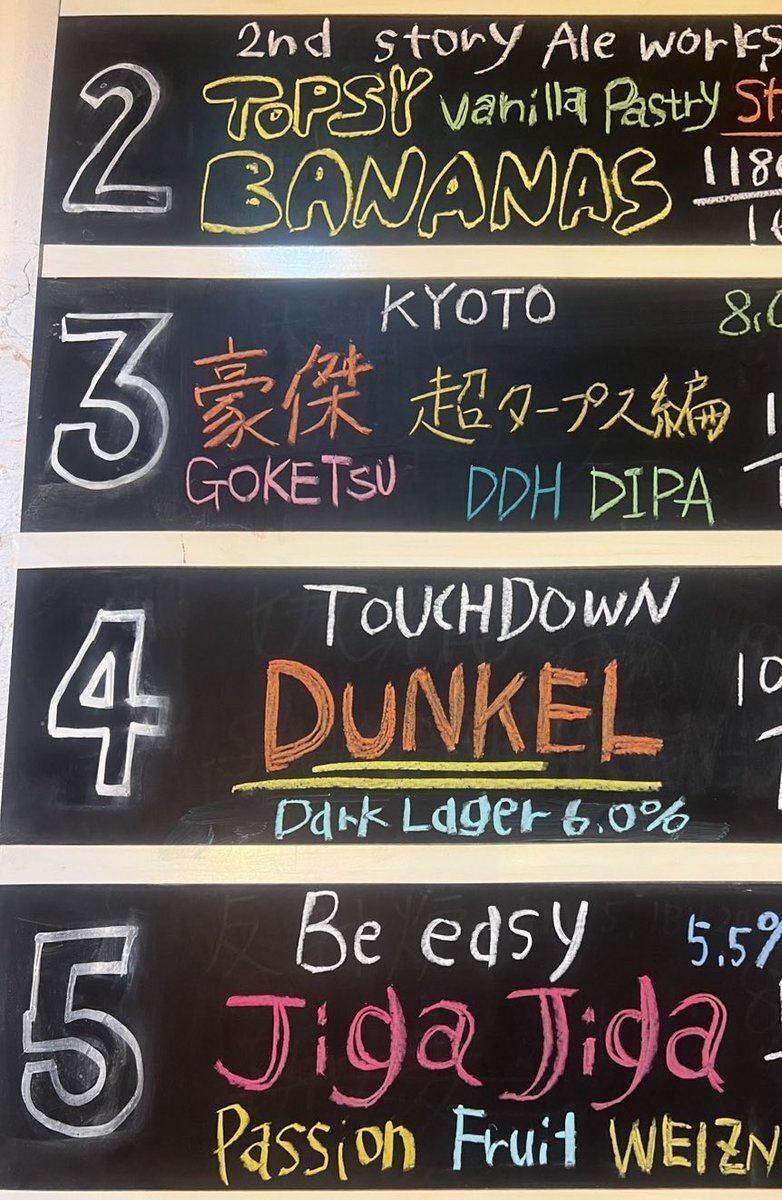 2
2nd story Ale works
TOPSY vanilla Pastry St
BANANAS 118
3
KYOTO 8.0
豪傑 超タープス編
GOKETSU DDH DIPA
4
TOUCHDOWN
DUNKEL 10
Dark Lager 6.0%
5
Be easy 5.5%
Jiga Jiga
Passion Fruit WEIZN